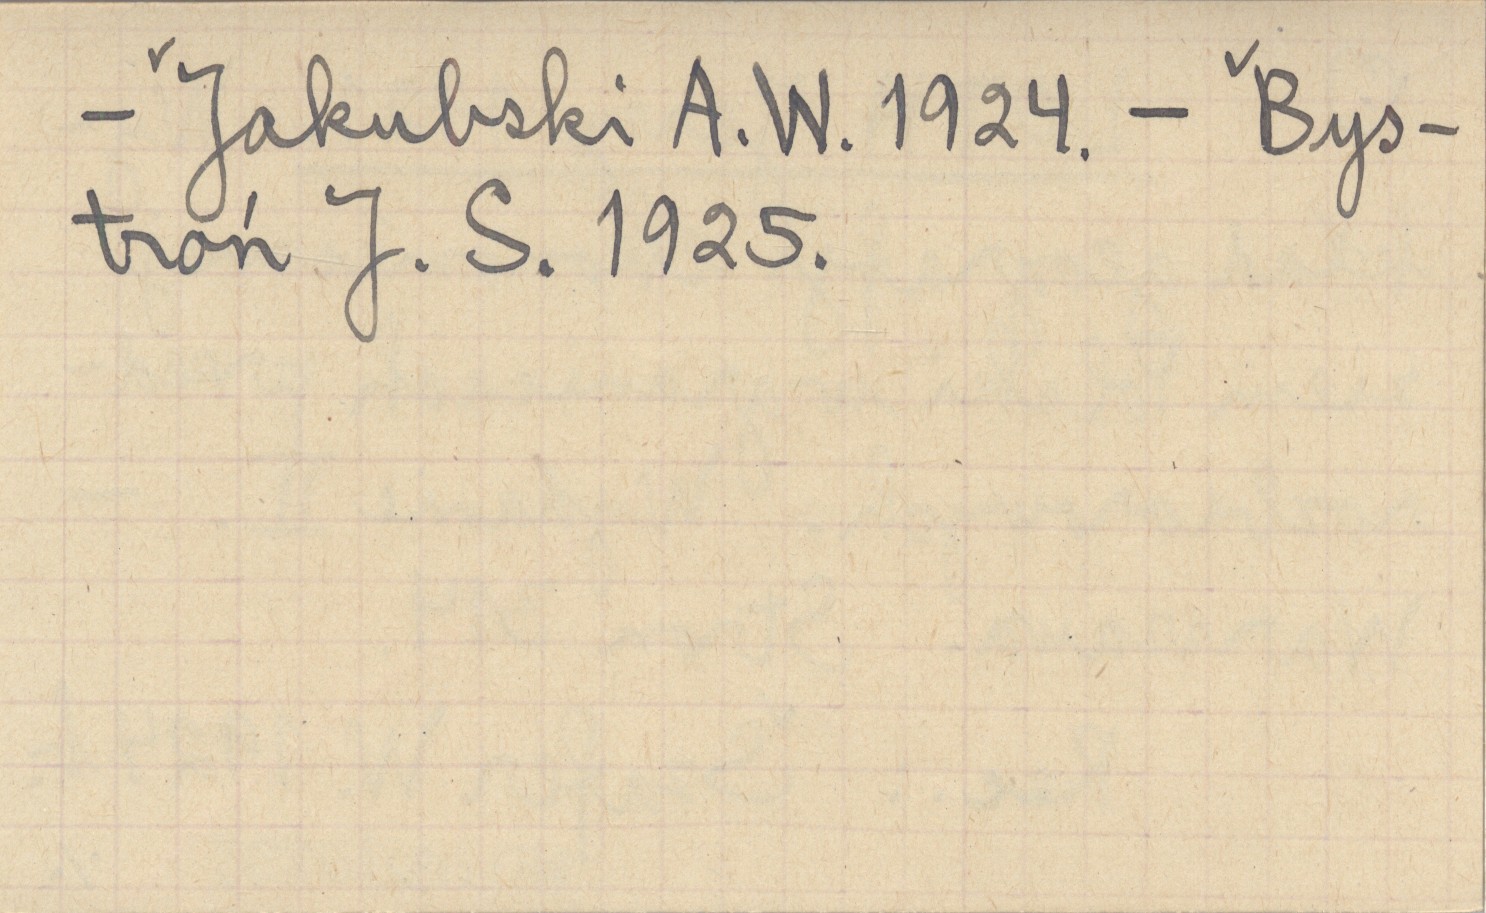 – ✓Jakubski A.W. 1924. – ✓Bys-
troń J. S. 1925.